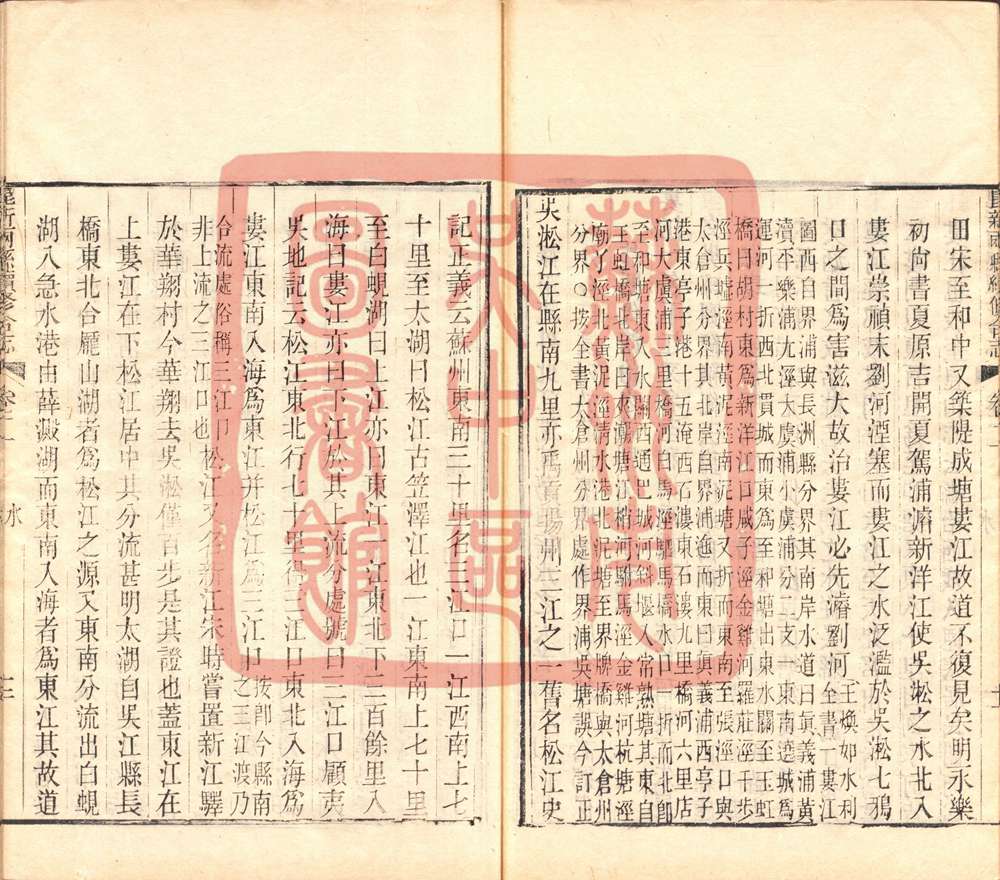 田宋至和中又築隄成塘婁江故道不復見矣明永樂
初尚書夏原吉開夏駕浦瀹新洋江使吳淞之水北入
婁江崇禎末劉河湮塞而婁江之水泛濫於吳淞七鴉
日之間爲害滋大故治婁江必先濬劉河
王煥如水利
全書一婁江
圖西自界浦與長洲縣分界其南岸水道曰眞義浦黃
瀆平樂浦尤涇大虞浦小虞浦分二支一東南遶城爲
運河一折西北貫城而東爲至和塘出東水關至玉虹
橋曰胡村東爲新洋江口咸子涇金雞河羅莊涇千步
涇兵墟涇南黃泥涇南泥塘又折而東南至張涇口與
太倉州分界其北岸自界浦迤而東曰眞義浦西亭子
港東亭子港十五淹西石漊東石漊九里橋河六里店
河大虞浦三里橋河白馬涇驅馬橋水口一折而北卽
至和塘東入水關西通巴城河斜堰入常熟塘其東自
玉虹橋北岸曰夾潮塘江梢河駙馬涇金雞河杭塘涇
廟了涇北黃泥涇淸水港北泥塘至界牌橋與太倉州
分界○按全書太倉州分界處作界浦吳塘誤今訂正
吳淞江在縣南九里亦禹貢揚州三江之一舊名松江史
記正義云蘇州東南三十里名三江口一江西南上七
十里至太湖曰松江古笠澤江也一江東南上七十里
至白蜆湖曰上江亦曰東江一江東北下三百餘里入
海曰婁江亦曰下江於其上流分處號曰三江口顧夷
吳地記云松江東北行七十里得三江口東北入海爲
婁江東南入海爲東江并松江爲三江口
按卽今縣南
之三江渡乃
合流處俗稱三江口
非上流之三江口也
松江又名新江宋時嘗置新江驛
於華翔村今華翔去吳淞僅百步是其證也蓋東江在
上婁江在下松江居中其分流甚明太湖自吳江縣長
橋東北合龐山湖者爲松江之源又東南分流出白蜆
湖入急水港由薛澱湖而東南入海者爲東江其故道